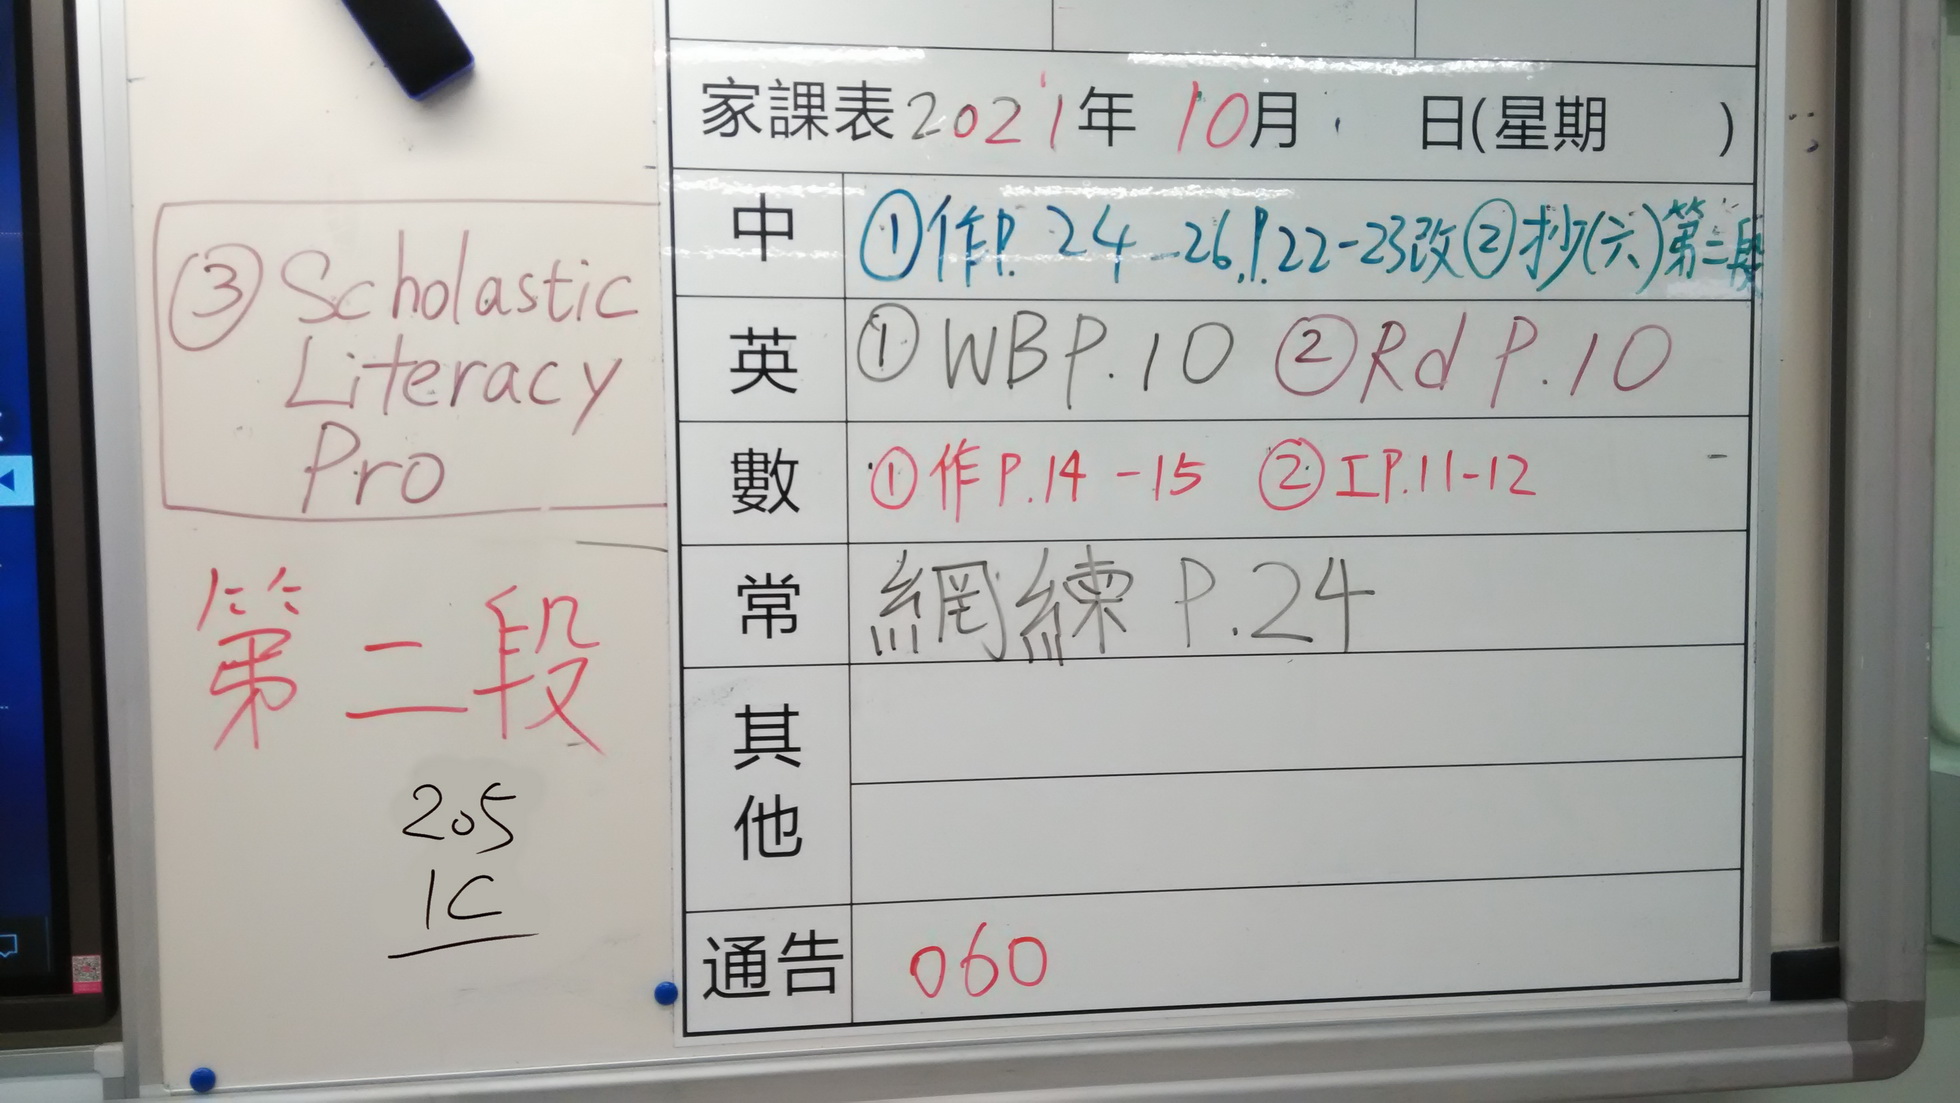 家課表2021年 10月 日(星期 )
中 ①作P.24-26,P.22-23改②抄(六)第二段
英 ①WBP.10 ②Rd P.10
③Scholastic
Literacy
Pro
數 ①作P.14-15 ②工P.11-12
常 網練 P.24
其他
通告 060
第二段
205
1C